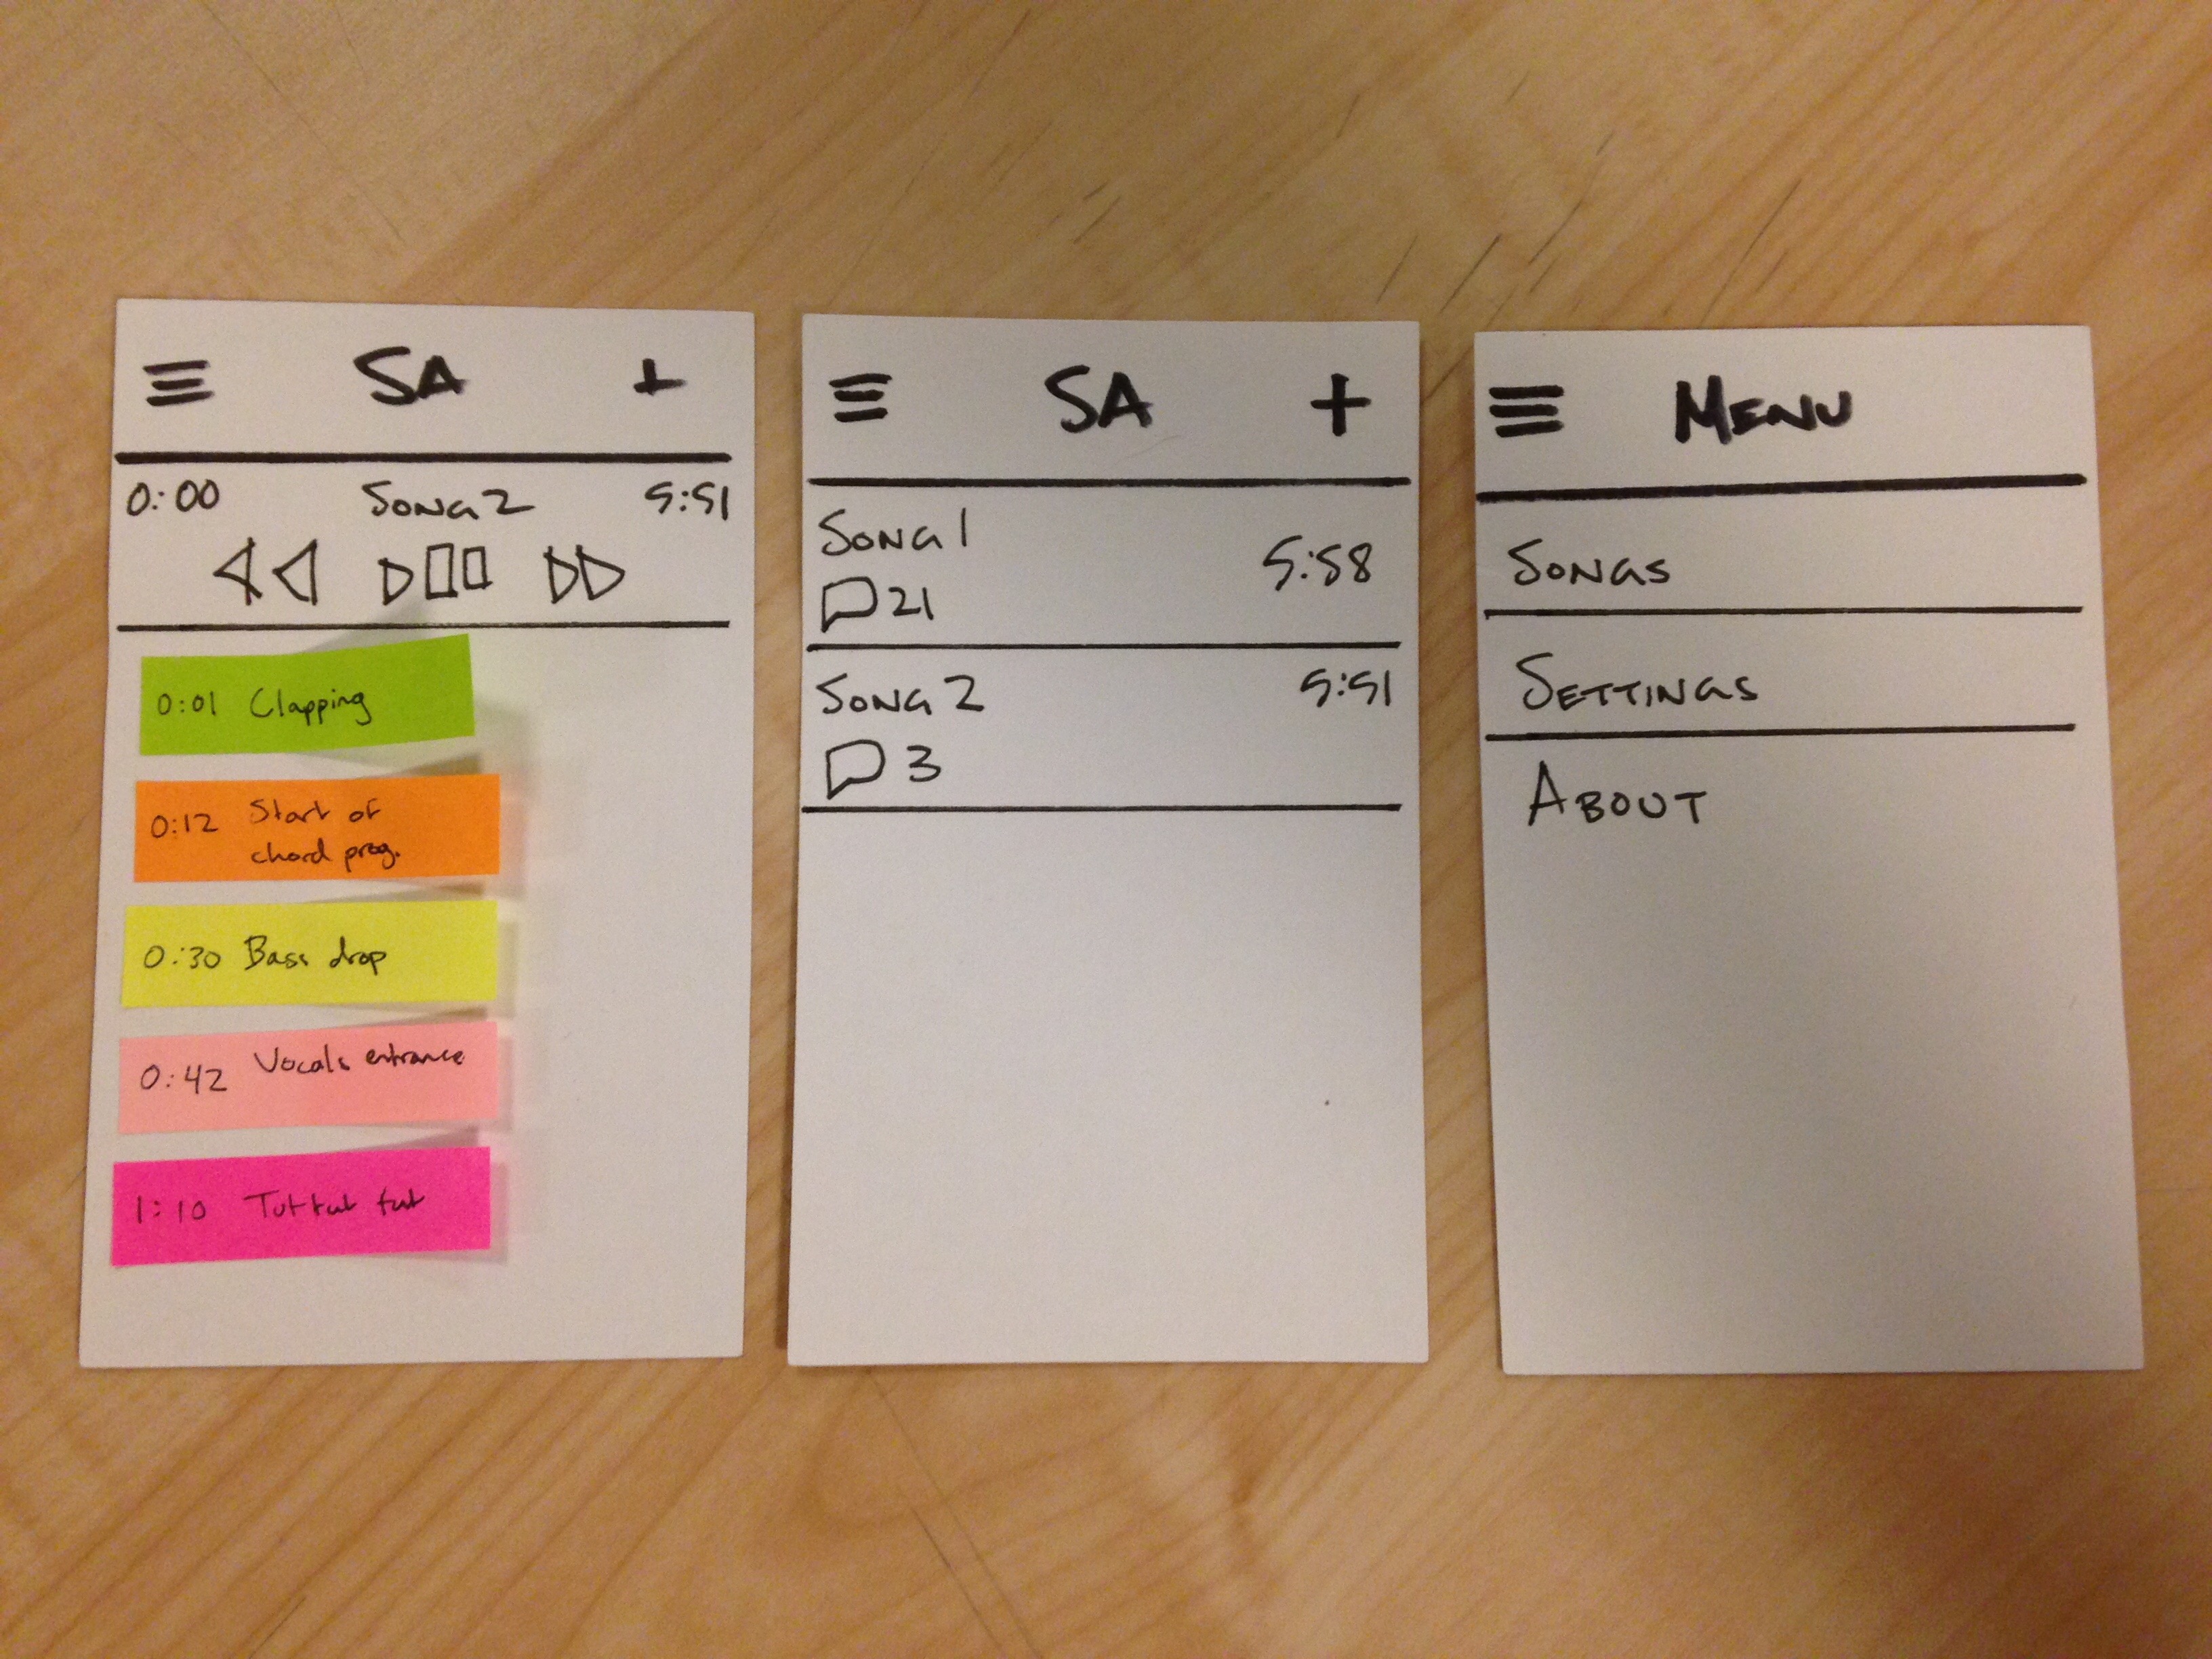 SA +
0:00 SONG 2 5:51
0:01 Clapping
0:12 Start of
chord prog.
0:30 Bass drop
0:42 Vocals entrance
1:10 Tut tut tut
SA +
SONG 1
5:58
21
SONG 2 5:51
3
MENU
SONGS
SETTINGS
ABOUT